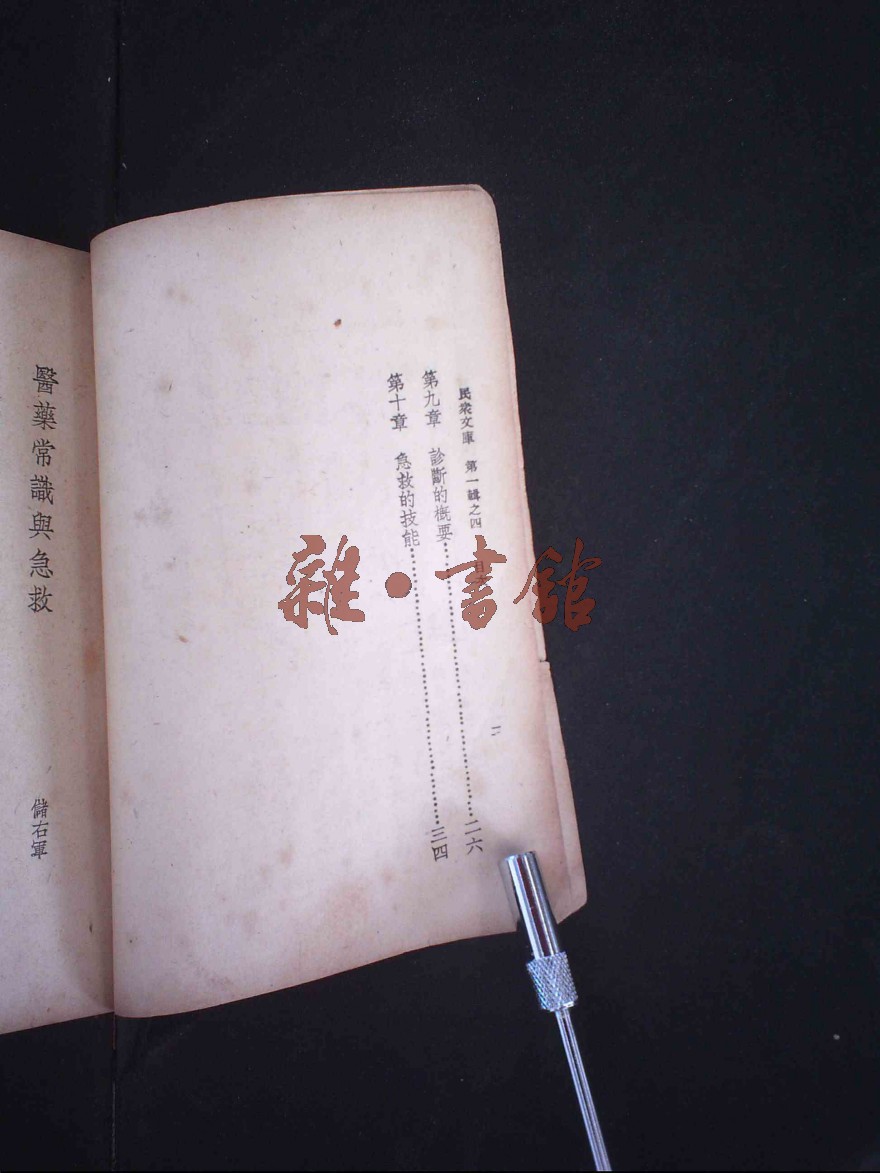 民衆文庫 第一輯之四 目次
二
第九章 診斷的概要……………………二六
第十章 急救的技能……………………三四
醫藥常識與急救
儲右軍
雜·書館